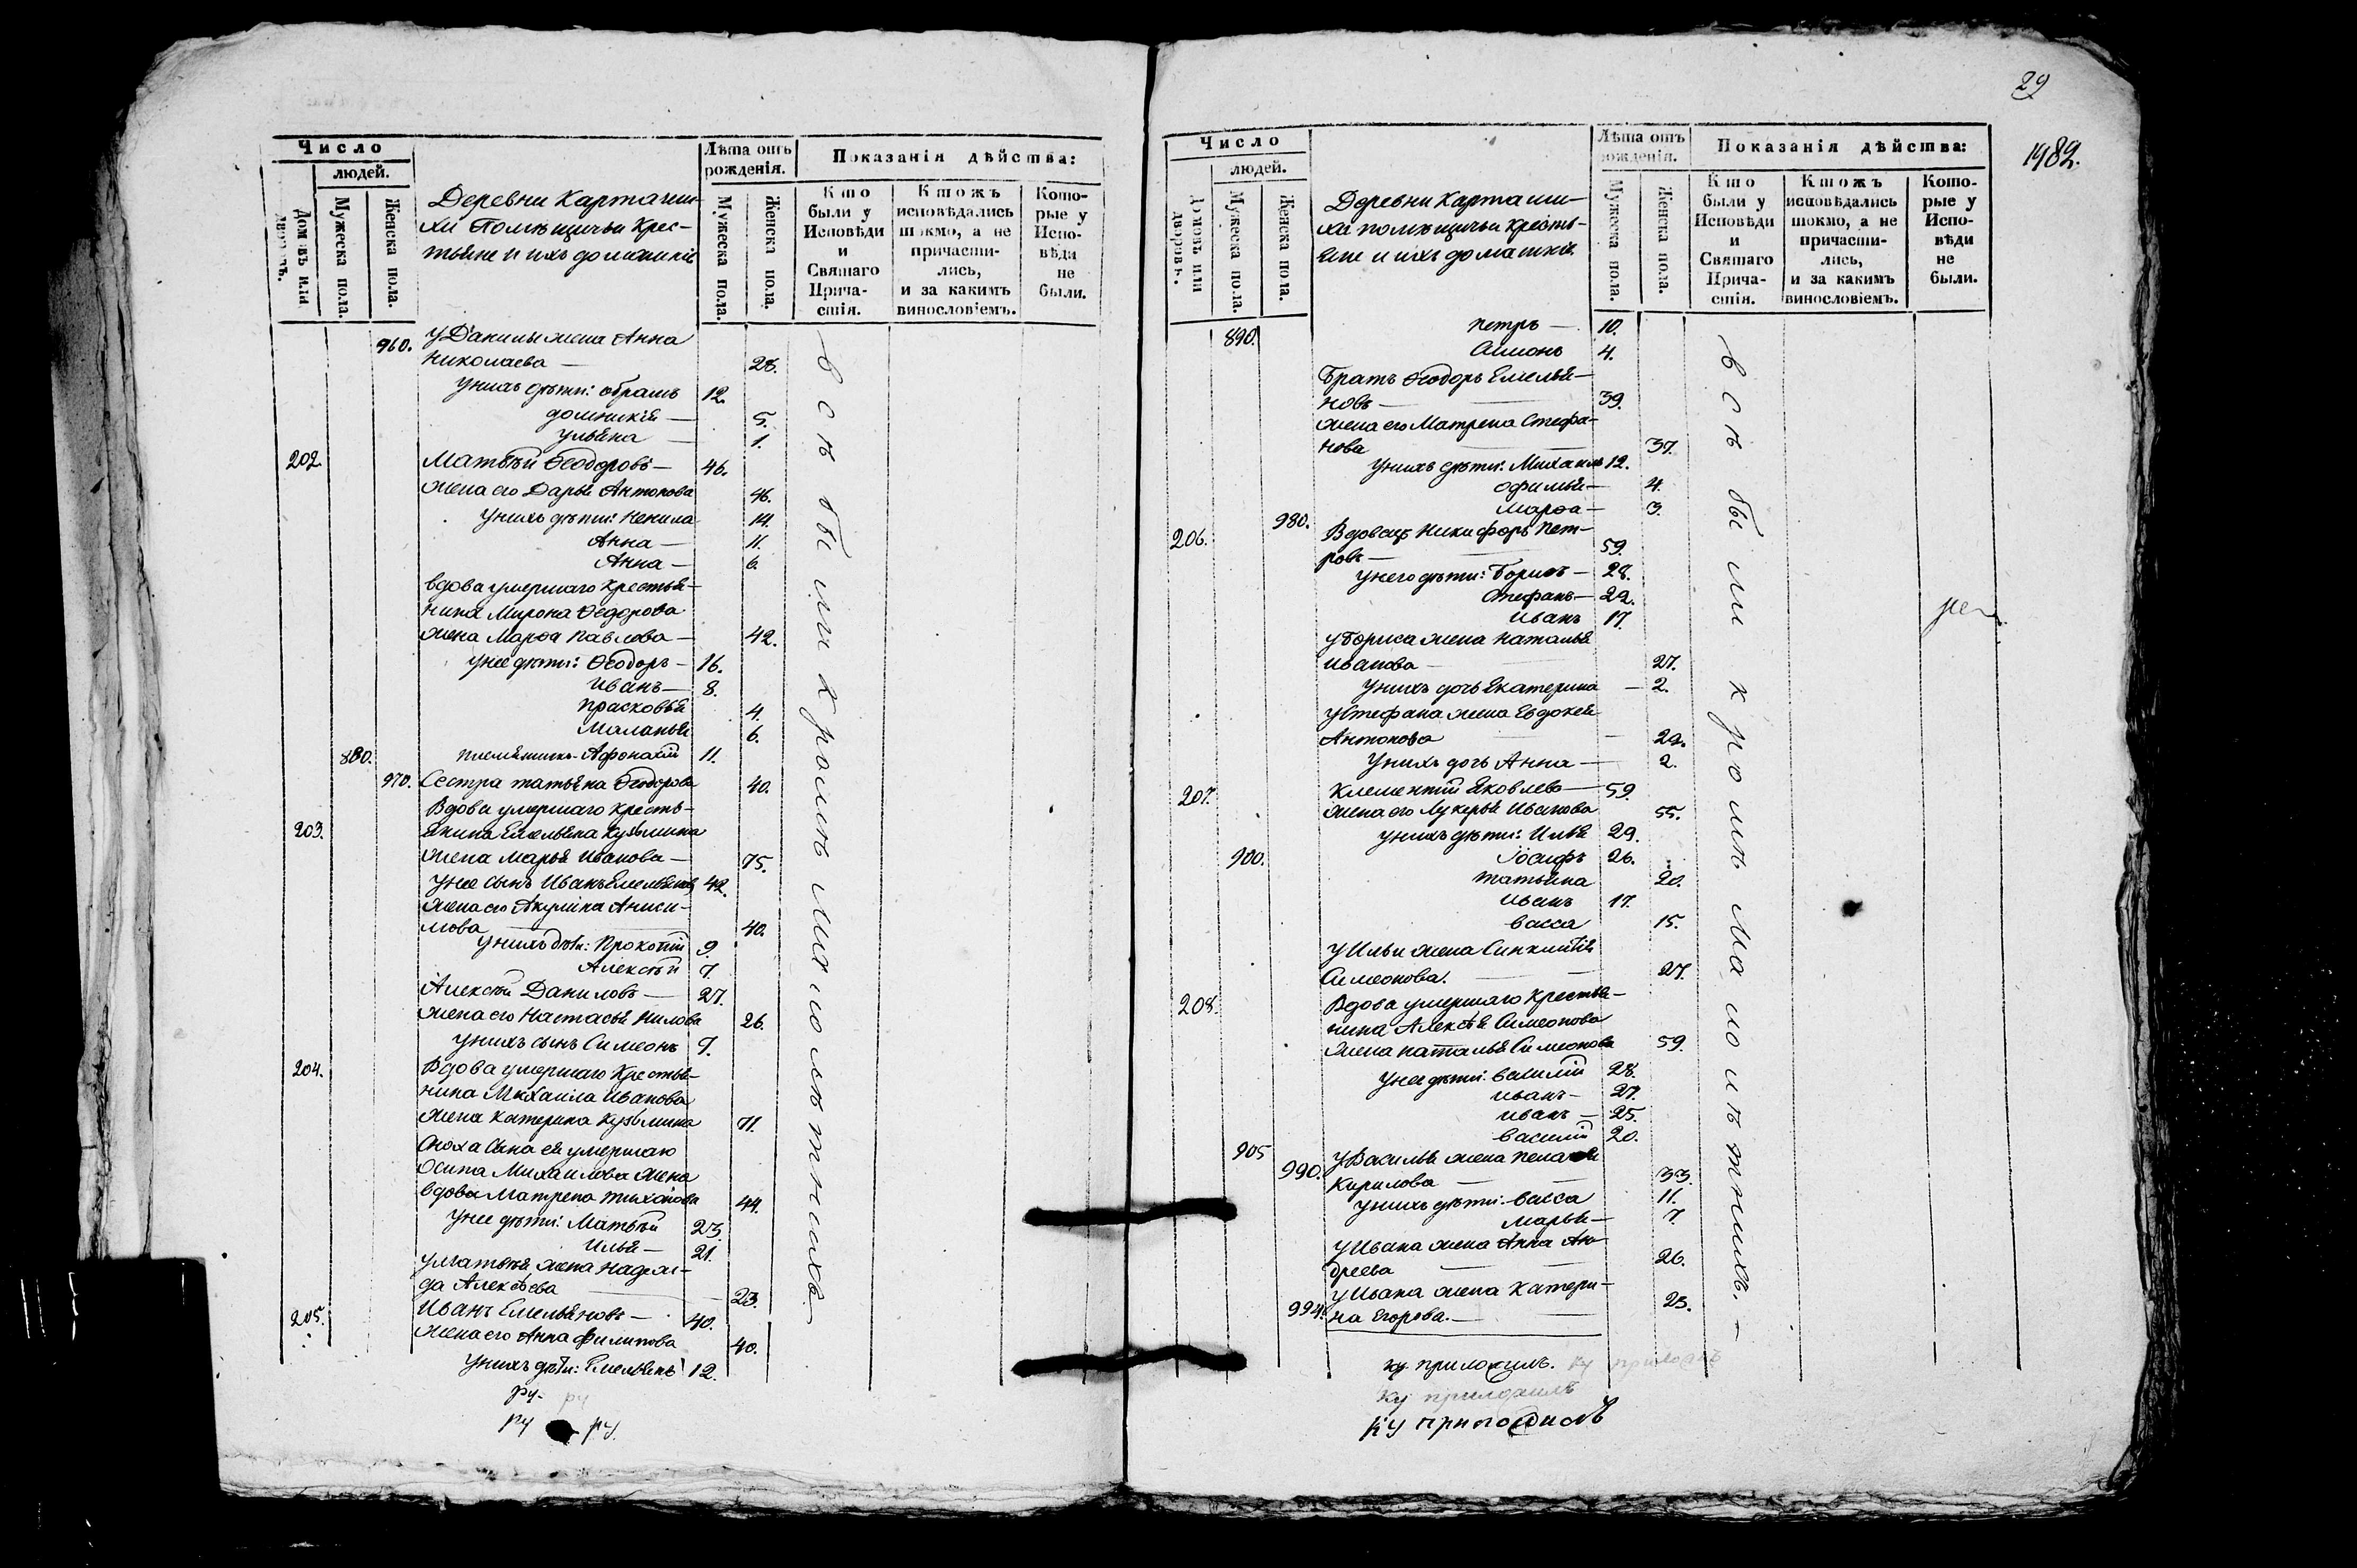 Число
людей.
Домовъ или дворовъ.
Мужеска пола.
Женска пола.
Деревни Карташи-
хи Помѣщичьи Крес-
тьяне и ихъ домашніе
Лѣта отъ
рожденія.
Мужеска пола.
Женска пола.
Показанія дѣйства:
Кто
были у
Исповѣди
и
Святаго
Прича-
стія.
Ктожъ
исповѣдались
токмо, а не
причасти-
лись,
и за какимъ
винословіемъ.
Кото-
рые у
Испо-
вѣди
не
были.
960. У Данилы жена Анна
Николаева — 28.
У нихъ дѣти: Абрамъ 12.
Домникія — 5.
Ульяна — 1.
202. Матвѣй Ѳеодоровъ — 46.
жена его Дарья Антонова 46.
У нихъ дѣти: Ненила 14.
Анна — 11.
Анна — 6.
вдова умершаго крестья-
нина Мирона Ѳедорова
жена Марѳа Павлова — 42.
у нее дѣти: Ѳеодоръ — 16.
Иванъ — 8.
Прасковья 4.
Маланья 6.
880. племянникъ Афонасій 11.
970. Сестра татьяна Ѳеодорова 40.
Вдова умершаго кресть-
203. янина Емельяна Кузьмина
жена Марья Иванова — 75.
у нее сынъ Иванъ Емельяновъ 42.
жена его Акулина Аниси-
мова 40.
У нихъ дѣти: Прокопій 9.
Алексѣй 7.
Алексѣй Даниловъ — 27.
жена его Настасья Нилова 26.
У нихъ сынъ Симеонъ 7.
204. Вдова умершаго Крестья-
нина Михаила Иванова
жена Катерина Кузьмина 71.
Сноха сына ея умершаго
Осипа Михаилова жена
вдова Матрена Тихонова 44.
У нее дѣти: Матвѣй 23.
Илья — 21.
у Матвѣя жена Надеж-
да Алексѣева — 23.
205. Иванъ Емельяновъ — 40.
жена его Анна Филипова 40.
У нихъ дѣти: Емельянъ 12.
всѣ были кромѣ малолѣтнихъ.
ру. ру
ру ру.
29
1982.
Число
людей.
Домовъ или дворовъ.
Мужеска пола.
Женска пола.
Деревни Карташи-
хи помѣщичьи кресть-
яне и ихъ домашніе
Лѣта отъ
рожденія.
Мужеска пола.
Женска пола.
Показанія дѣйства:
Кто
были у
Исповѣди
и
Святаго
Прича-
стія.
Ктожъ
исповѣдались
токмо, а не
причасти-
лись,
и за какимъ
винословіемъ.
Кото-
рые у
Испо-
вѣди
не
были.
890. Петръ — 10.
Симонъ 4.
Братъ Ѳеодоръ Емелья-
новъ — 39.
жена его Матрена Стефа-
нова 37.
У нихъ дѣти: Михаилъ 12.
Офимья — 4.
980. Марѳа — 3.
206. Вдовецъ Никифоръ Пет-
ровъ — 59.
у него дѣти: Борисъ — 28.
Стефанъ — 22.
Иванъ 17.
у Бориса жена Наталья
Иванова — 27.
У нихъ дочь Екатерина — 2.
у Стефана жена Евдокея
Антонова — 22.
У нихъ дочь Анна — 2.
207. Климентій Яковлевъ — 59.
жена его Лукерья Иванова 55.
У нихъ дѣти: Илья 29.
900. Іосифъ 26.
Татьяна 20.
Иванъ 17.
Васса 15.
У Ильи жена Синклитія
Симеонова. — 27.
208. Вдова умершаго крестья-
нина Алексѣя Симеонова
жена Наталья Симеонова 59.
у нее дѣти: Василій 28.
Иванъ — 27.
Иванъ — 25.
Василій 20.
905 У Василья жена Пелагея
990. Кирилова — 33.
у нихъ дѣти: Васса 11.
Марья — 7.
У Ивана жена Анна Ан-
дреева — 26.
у Ивана жена Катери-
994. на Егорова. — 23.
всѣ были кромѣ малолѣтнихъ. —
ку приложилъ. ку приложилъ
ку приложилъ
ку приложилъ